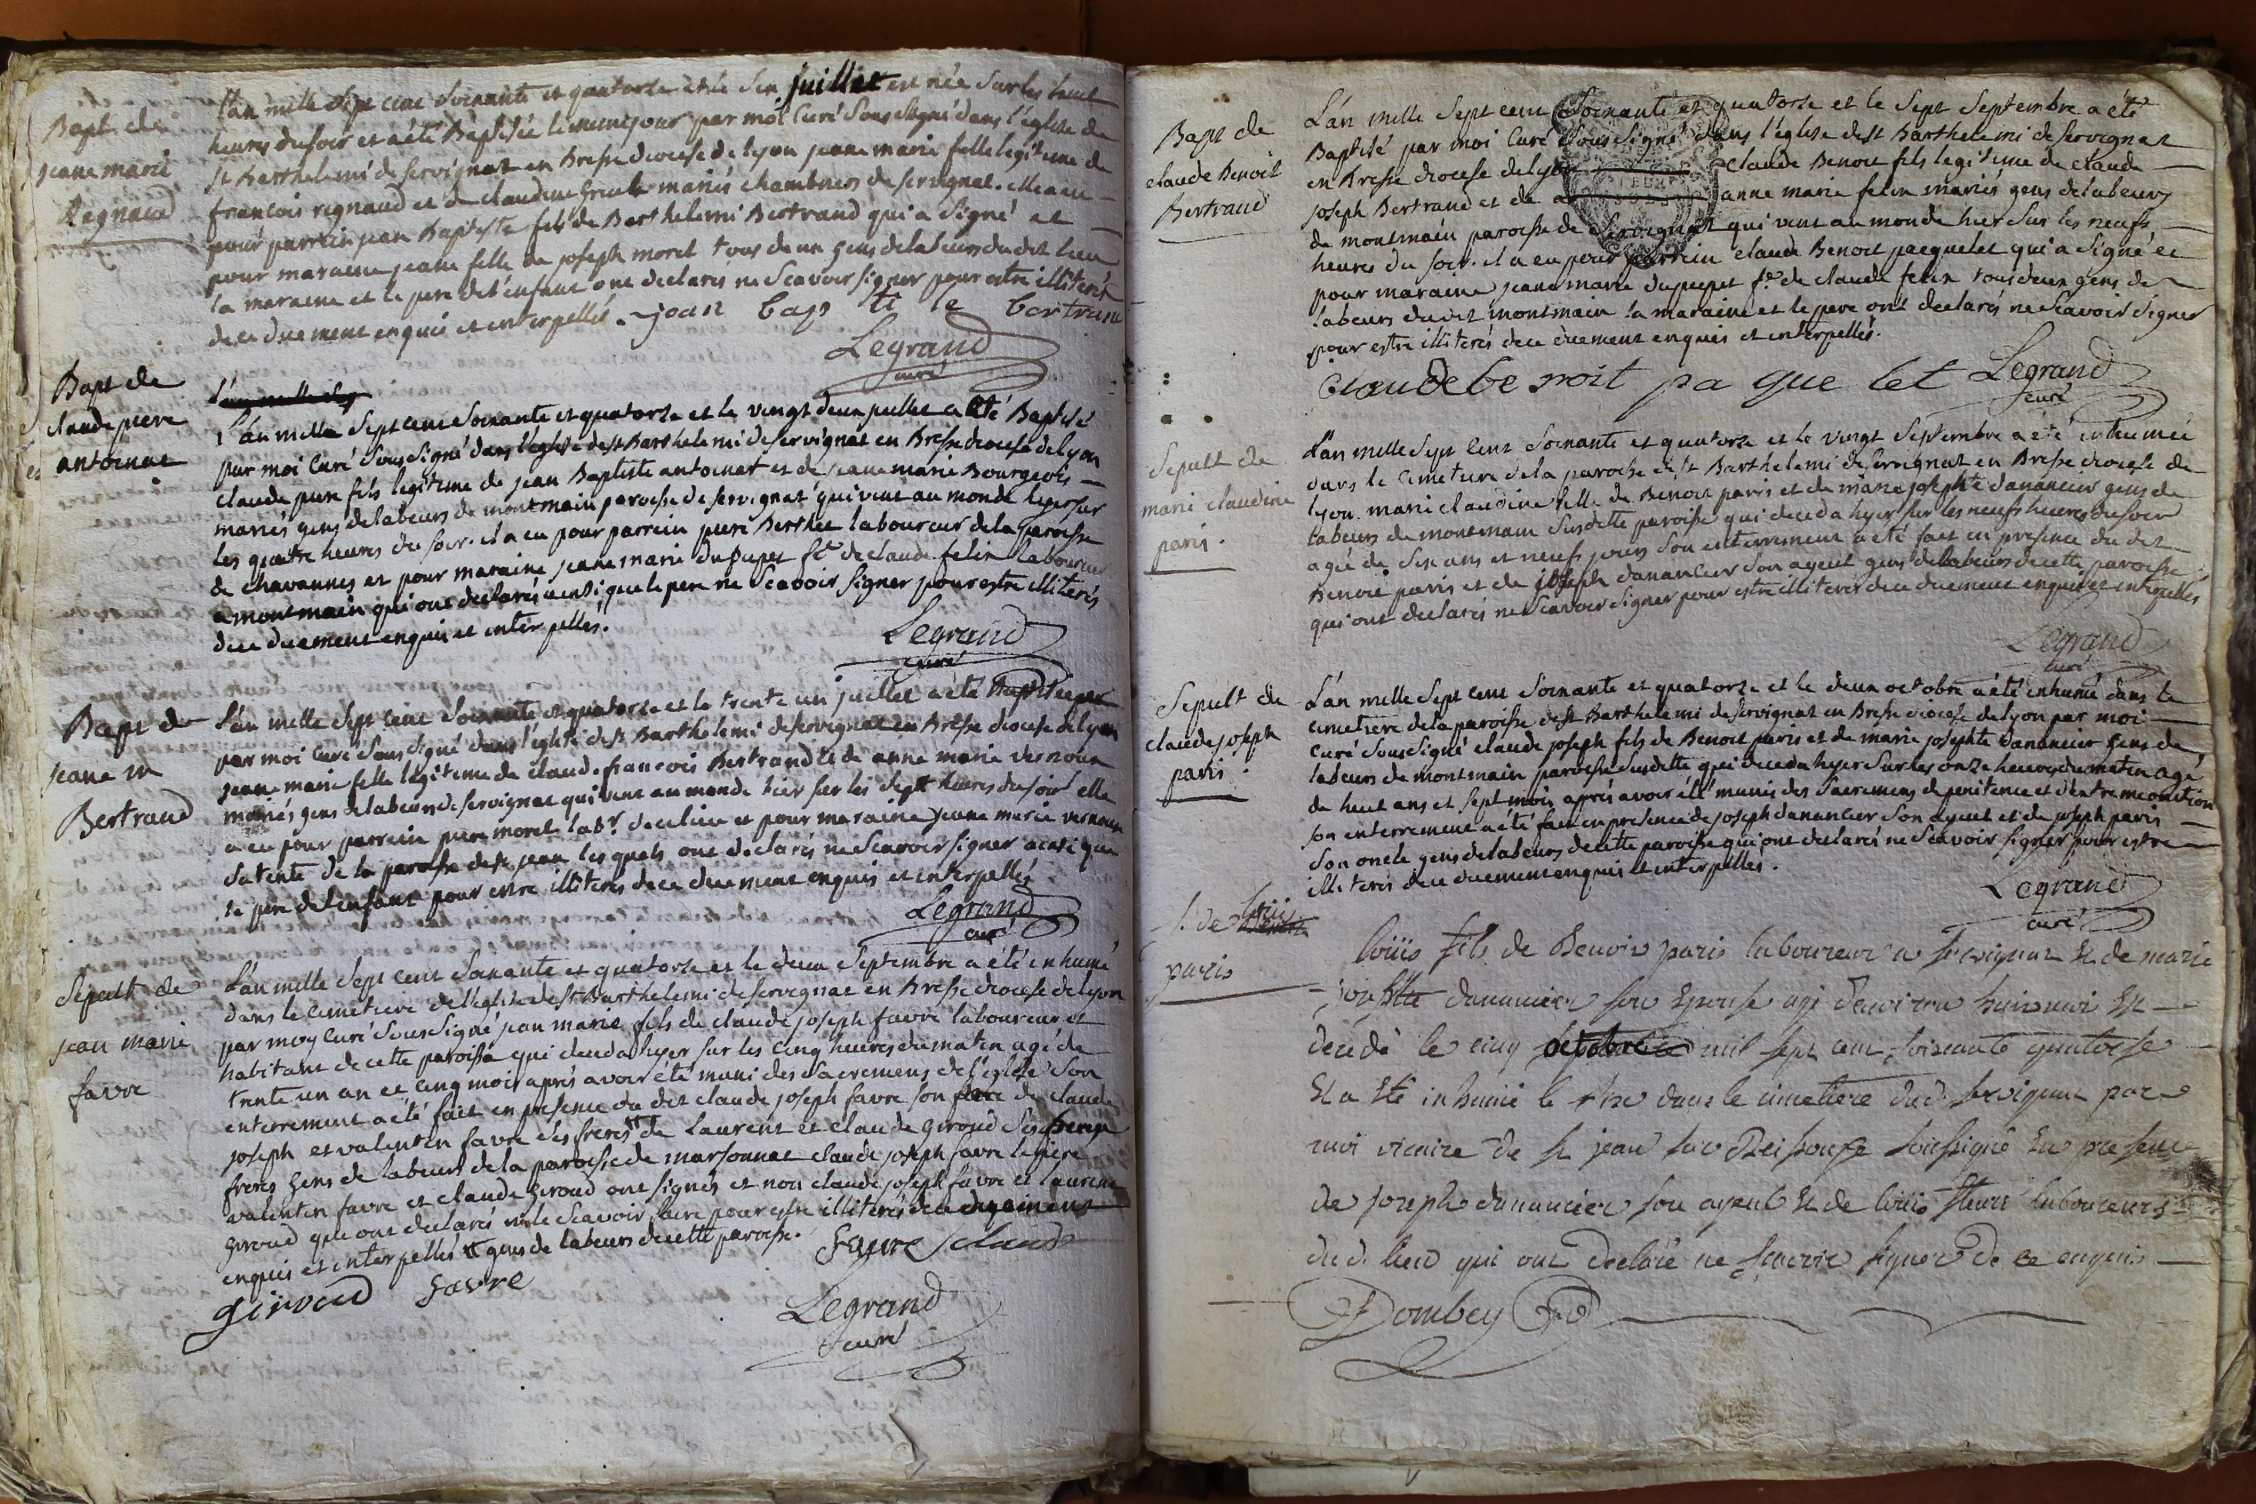 Bapt de
jeane marie
Regnaud
L'an mille Sept cent Soixante et quatorze et le Six juillet est née Sur les huit
heures du soir et a été Baptisée le meme jour par moi Curé Sous Signé dans l'église de
St Barthelemi de servignat en Bresse diocese de lyon jeane marie fille legitime de
francois regnaud et de claudine mariés chambriers de servignat. elle a eu
pour parrein jean Baptiste fils de Barthelemi Bertrand qui a Signé et
pour maraine jeane fille de joseph morel tous deux gens de labeurs du dit lieu
la maraine et le pere de l'enfant ont declarés ne Scavoir signer pour estre illiterés
de ce duement enquis et interpellés. jean bap ti le bertrand
Legrand
curé
Bapt de
claude piere
antoinat
L'an mille sep
L'an mille Sept cent Soixante et quatorze et le vingt deux juillet a été Baptisé
par moi Curé Sous Signé dans l'eglise de st Barthelemi de servignat en Bresse diocese de lyon
claude piere fils legitime de jean Baptiste antoinat et de jeane marie Bourgeois
mariés gens de labeurs de montmain paroisse de servignat qui vint au monde hyer sur
les quatre heures du soir. il a eu pour parrein piere Berthet laboureur de la paroisse
de chavannes et pour maraine jeane marie dupupet fe de claude felix laboureur
a montmain qui ont declarés ainsi que le pere ne Scavoir signer pour estre illiterés
de ce duement enquis et interpellés.
Legrand
curé
Bapt de
jeane m
Bertrand
L'an mille Sept cent Soixante et quatorze et le trente un juillet a été Baptisée par
par moi Curé Sous Signé dans l'église de St Barthelemi de servignat en Bresse diocese de lyon
jeane marie fille légitime de claude francois Bertrand et de anne marie vernoux
mariés gens de labeurs de servignat qui vint au monde hier sur les Sept heures du soir elle
a eu pour parrein piere morel labr. de ce lieu et pour maraine jeane marie vernoux
sa tente de la paroisse de st jean les quels ont declarés ne Scavoir signer ainsi que
le pere de l'enfant pour estre illiterés de ce duement enquis et interpellés
Legrand
curé
Sepult de
jean marie
favre
L'an mille Sept cent Soixante et quatorze et le deux Septembre a été inhumé
dans le cimetiere de l'église de st Barthelemi de servignat en Bresse diocese de lyon
par moy Curé Sous Signé jean marie fils de claude joseph favre laboureur et
habitant de cette paroisse qui deceda hyer sur les cinq heures du matin agé de
trente un an et cinq mois après avoir été muni des sacremens de l'église Son
enterrement a été fait en presence du dit claude joseph favre son pere de claude
joseph et valentin favre ses freres de Laurent et claude Giroud
freres gens de labeurs de la paroisse de marsonnat claude joseph favre le piere
valentin favre et claude Giroud ont signés et non claude joseph favre et laurent
Giroud qui ont declarés ne le Scavoir faire pour estre illiterés de ce duement
enquis et interpellés gens de labeurs de cette paroisse.
favre claude
giroud favre
Legrand
curé
Bapt de
claude Benoit
Bertrand
L'an mille Sept cent Soixante et quatorze et le Sept Septembre a été
Baptisé par moi Curé Sous Signé dans l'église de st Barthelemi de servignat
en Bresse diocese de lyon claude Benoit fils legitime de claude
joseph Bertrand et de anne marie felix mariés gens de labeurs
de montmain paroisse de Servignat qui vint au monde hier sur les neufs
heures du soir. il a eu pour parrein claude Benoit pacquelet qui a Signé et
pour maraine jeane marie dupupet fe. de claude felix tous deux gens de
labeurs du dit montmain la maraine et le pere ont declarés ne Scavoir Signer
pour estre illiterés de ce duement enquis et interpellés.
claude be noit pa que let Legrand
curé
Sepult de
marie claudine
paris.
L'an mille Sept Cent Soixante et quatorze et le vingt Septembre a été inhumée
dans le Cimetiere de la paroisse de St Barthelemi de servignat en Bresse diocese de
lyon. marie claudine fille de Benoit paris et de marie josephte danancier gens de
labeurs de montmain susditte paroisse qui deceda hyer sur les neufs heures du soir
agée de Six ans et neufs jours Son enterrement a été fait en presence du dit
Benoit paris et de joseph dananCier Son ayeul gens de labeurs de cette paroisse
qui ont declarés ne Scavoir signer pour estre illiterés de ce duement enquis et interpellés
Legrand
curé
Sepult de
claude joseph
paris.
L'an mille Sept Cent Soixante et quatorze et le deux octobre a été inhumé dans le
cimetiere de la paroisse de st Barthelemi de servignat en Bresse diocese de lyon par moi
Curé Sous Signé claude joseph fils de Benoit paris et de marie josephte dananCier gens de
labeurs de montmain paroisse Susditte qui deceda hyer Sur les onze heures du matin agé
de huit ans et Sept mois après avoir été munis des Sacremens de penitence et d'extremeonction
son enterrement a été fait en presence de joseph dananCier Son ayeul et de joseph paris
Son oncle gens de labeurs de cette paroisse qui ont declarés ne Scavoir Signer pour estre
illiterés de ce duement enquis et interpellés.
Legrand
curé
S. de loüis
paris
loüis fils de Benoit paris laboureur a servignat et de marie
josephte dananciér son epouse agé d'environ huit mois est
décédé le cinq octobre mil sept cent soixante quatorze
et a été inhumé le dans le cimetiere dud. servignat par
moi vicaire de st jean sur Reissouse soussigné en presence
de joseph dananciér son ayeul et de loüis laboureurs
dud. lieu qui ont declaré ne scavoir signer de ce enquis
Dombey